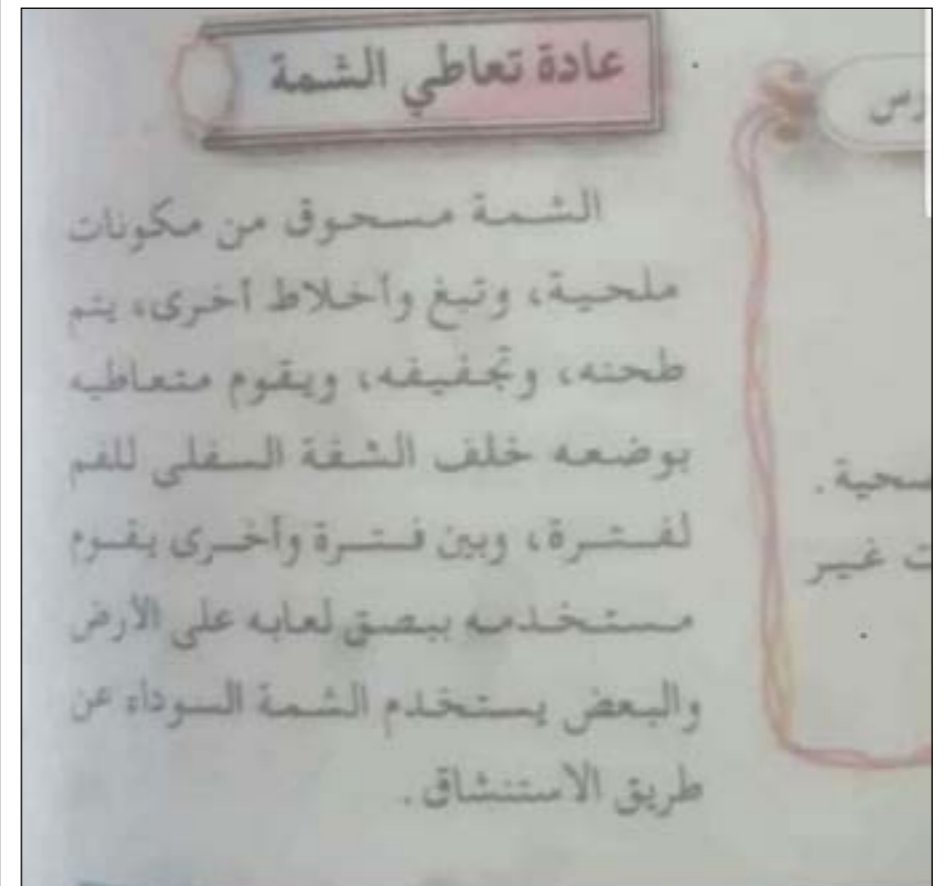 عادة تعاطي الشمة
الشمة مسحوق من مكونات
ملحية، وتبغ وأخلاط أخرى، يتم
طحنه، وتجفيفه، ويقوم متعاطيه
بوضعه خلف الشفة السفلى للفم
لفترة، وبين فترة وأخرى يقوم
مستخدمه ببصق لعابه على الأرض
والبعض يستخدم الشمة السوداء عن
طريق الاستنشاق.
صحية.
ت غير